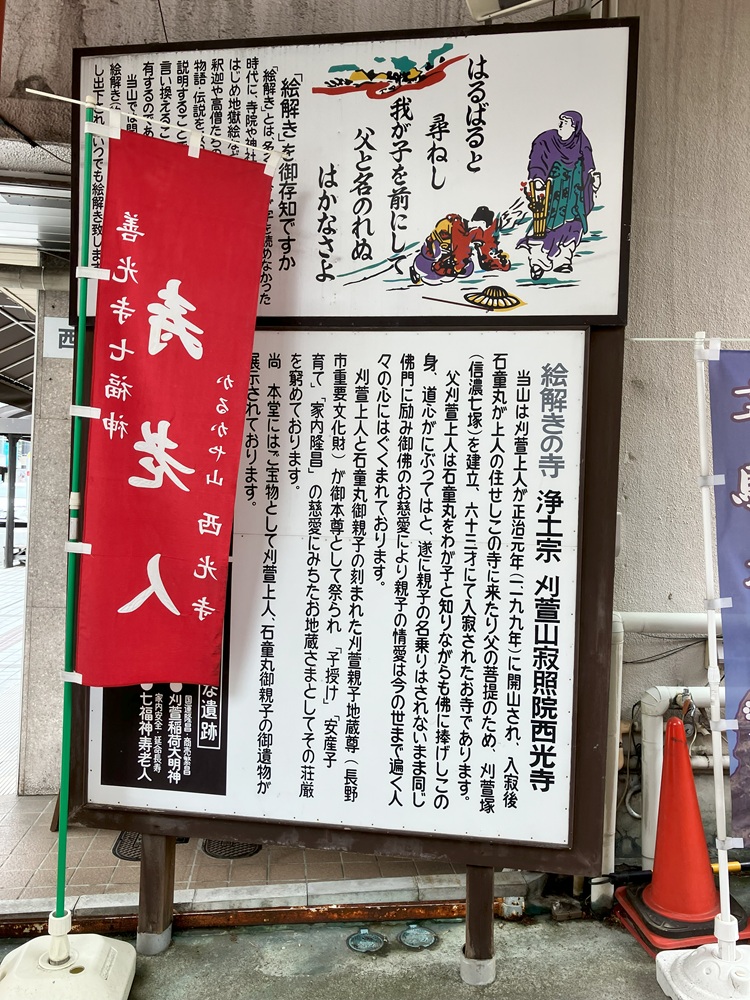 はるばると
尋ねし
我が子を前にして
父と名のれぬ
はかなさよ
「絵解き」を御存知ですか
「絵解き」とは、 字を読めなかった
時代に、寺院や神社
はじめ地獄絵など
釈迦や高僧たちの
物語・伝説を
説明すること
言い換えるこ
有するのであ
当山では
絵解き
し出下され いつでも絵解き致します
絵解きの寺 浄土宗 刈萱山寂照院西光寺
当山は刈萱上人が正治元年(一一九九年)に開山され、入寂後
石童丸が上人の住せしこの寺に来たり父の菩提のため、刈萱塚
(信濃七塚)を建立、六十三才にて入寂されたお寺であります。
父刈萱上人は石童丸をわが子と知りながらも佛に捧げしこの
身、道心がにぶってはと、遂に親子の名乗りはされないまま同じ
佛門に励み御佛のお慈愛により親子の情愛は今の世まで遍く人
々の心にはぐくまれております。
刈萱上人と石童丸御親子の刻まれた刈萱親子地蔵尊(長野
市重要文化財)が御本尊として祭られ「子授け」「安産子
育て」「家内隆昌」の慈愛にみちたお地蔵さまとしてその荘厳
を窮めております。
尚 本堂にはご宝物として刈萱上人、石童丸御親子の御遺物が
展示されております。
な遺跡
国運隆昌・商売繁昌
●刈萱稲荷大明神
家内安全・延命長寿
●七福神寿老人
善光寺七福神
寿老人
かるかや山 西光寺
西